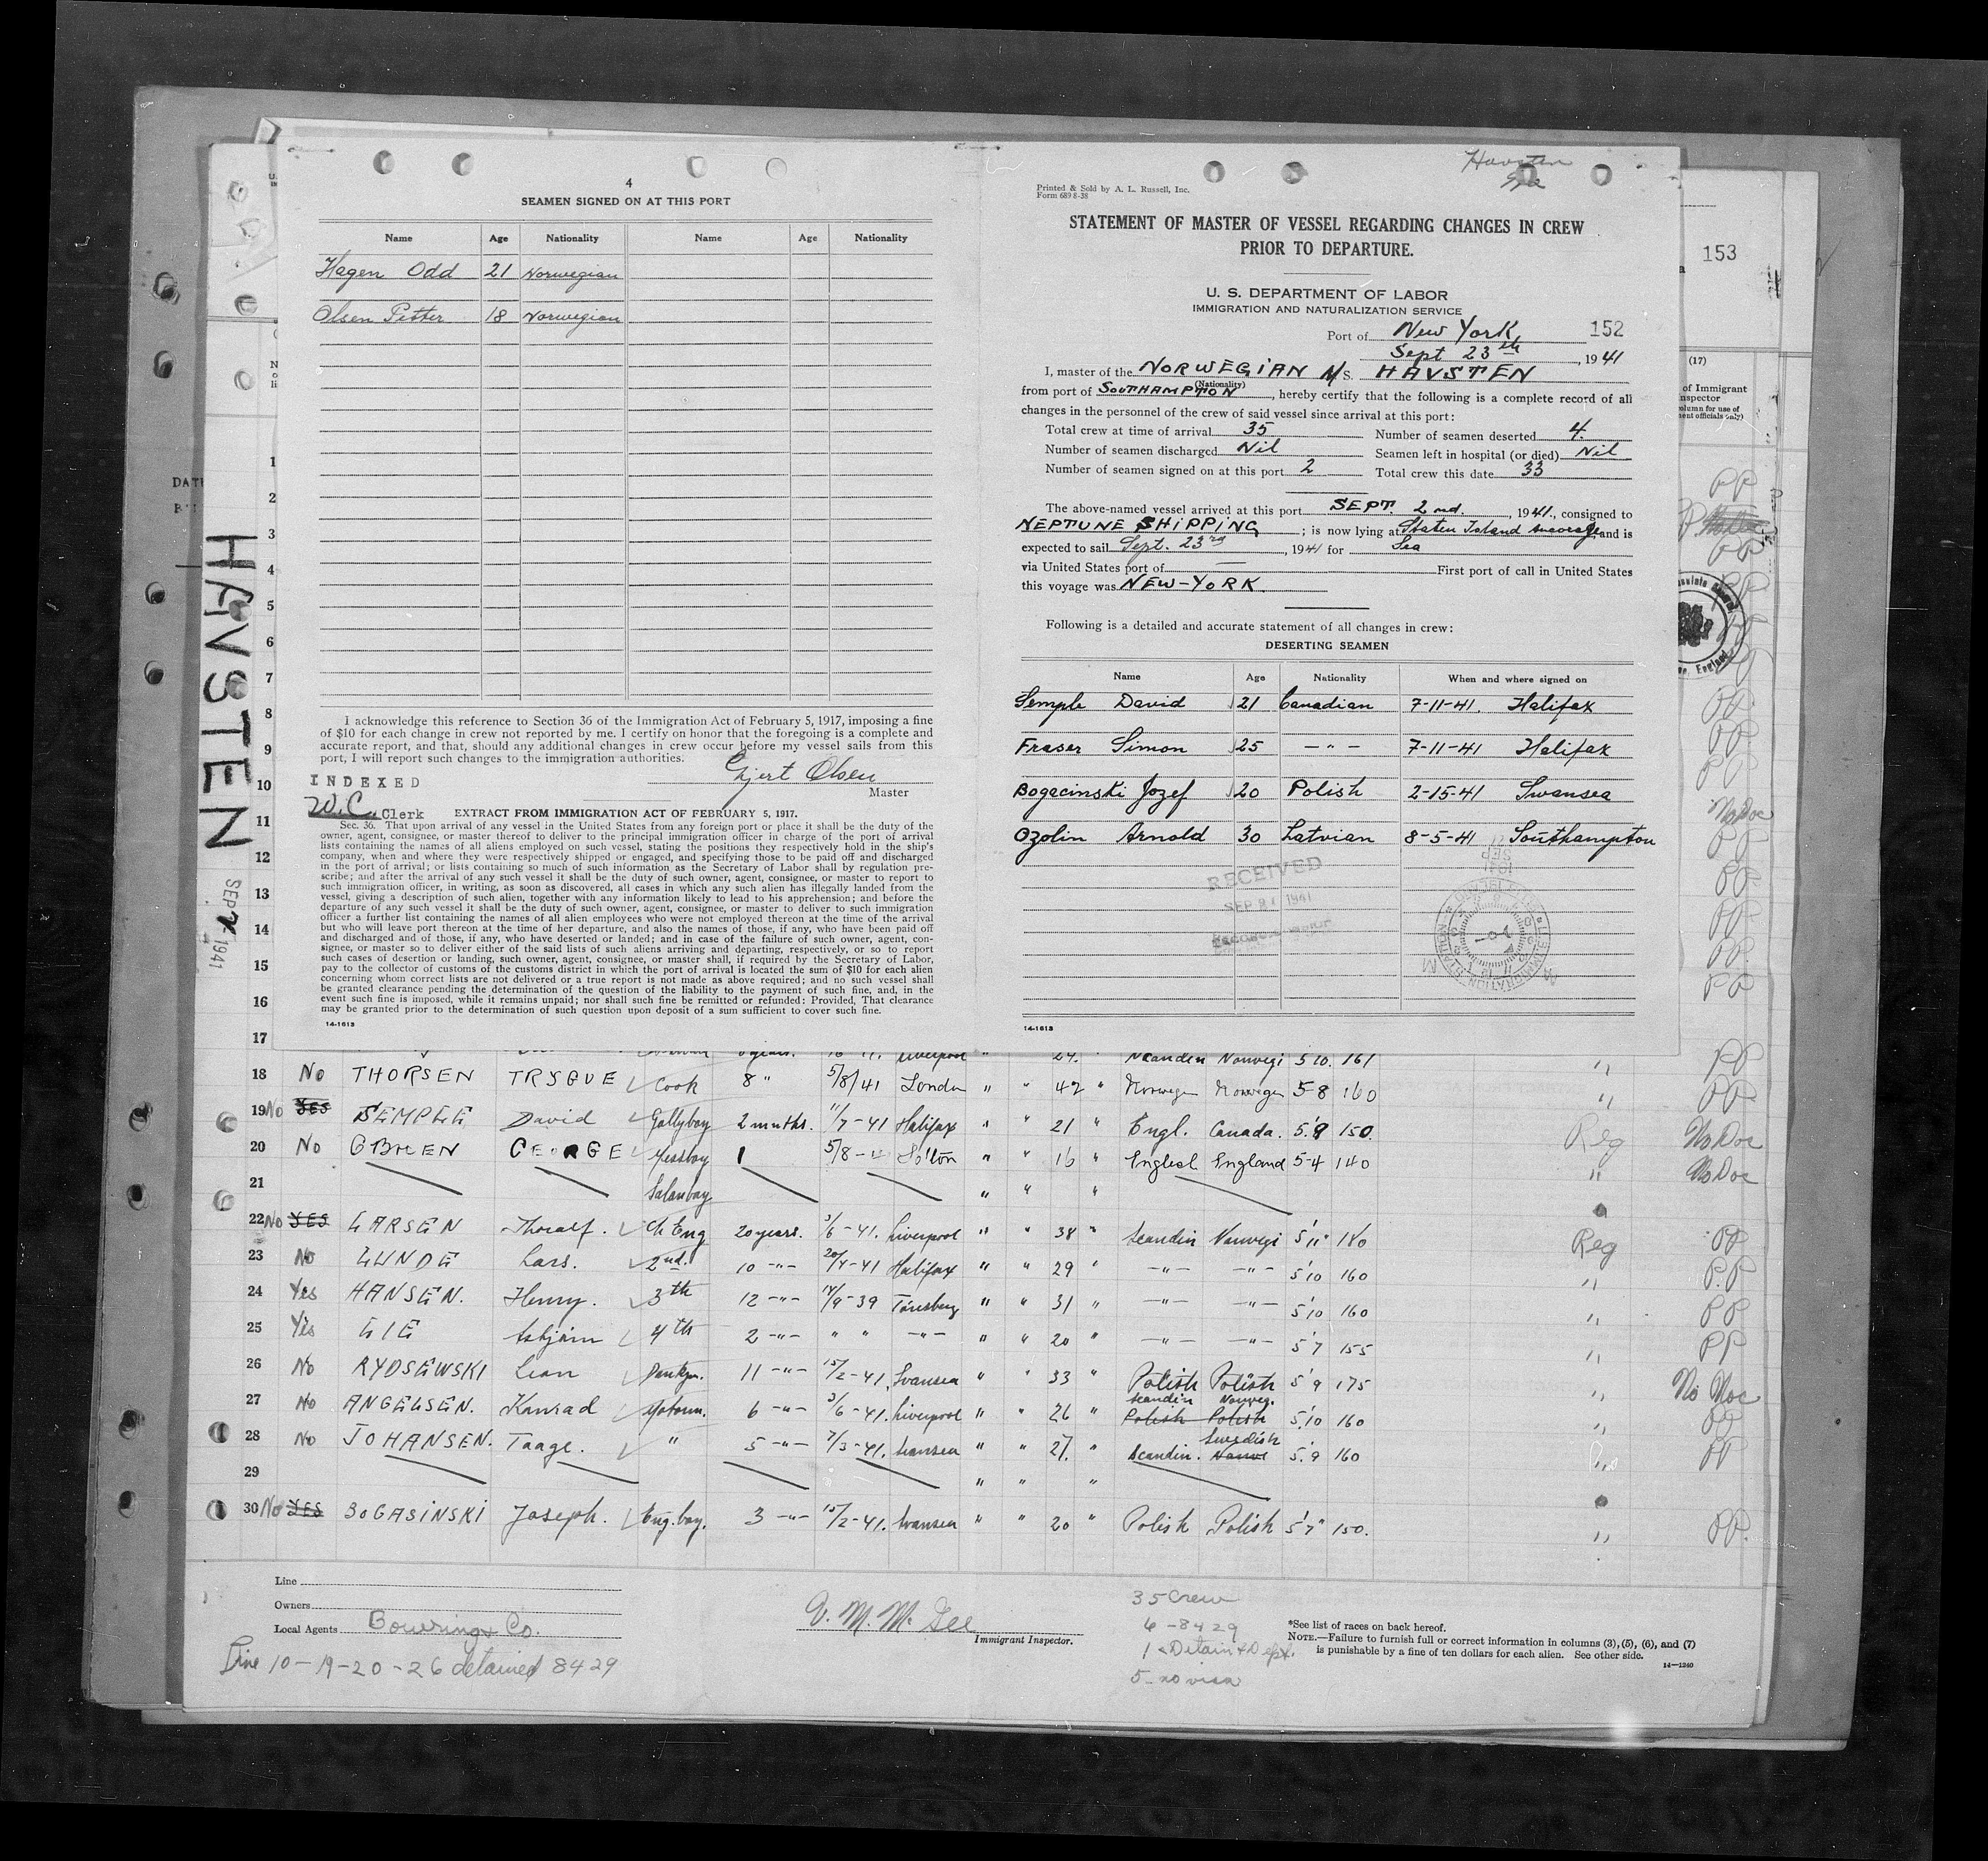 4
SEAMEN SIGNED ON AT THIS PORT
Name Age Nationality Name Age Nationality
Hagen Odd 21 Norwegian
Olsen Petter 18 Norwegian
I acknowledge this reference to Section 36 of the Immigration Act of February 5, 1917, imposing a fine
of $10 for each change in crew not reported by me. I certify on honor that the foregoing is a complete and
accurate report, and that, should any additional changes in crew occur before my vessel sails from this
port, I will report such changes to the immigration authorities.
Gjert Olsen
Master
INDEXED
W.C. Clerk
EXTRACT FROM IMMIGRATION ACT OF FEBRUARY 5, 1917.
Sec. 36. That upon arrival of any vessel in the United States from any foreign port or place it shall be the duty of the
owner, agent, consignee, or master thereof to deliver to the principal immigration officer in charge of the port of arrival
lists containing the names of all aliens employed on such vessel, stating the positions they respectively hold in the ship's
company, when and where they were respectively shipped or engaged, and specifying those to be paid off and discharged
in the port of arrival; or lists containing so much of such information as the Secretary of Labor shall by regulation pre-
scribe; and after the arrival of any such vessel it shall be the duty of such owner, agent, consignee, or master to report to
such immigration officer, in writing, as soon as discovered, all cases in which any such alien has illegally landed from the
vessel, giving a description of such alien, together with any information likely to lead to his apprehension; and before the
departure of any such vessel it shall be the duty of such owner, agent, consignee, or master to deliver to such immigration
officer a further list containing the names of all alien employees who were not employed thereon at the time of the arrival
but who will leave port thereon at the time of her departure, and also the names of those, if any, who have been paid off
and discharged and of those, if any, who have deserted or landed; and in case of the failure of such owner, agent, con-
signee, or master so to deliver either of the said lists of such aliens arriving and departing, respectively, or so to report
such cases of desertion or landing, such owner, agent, consignee, or master shall, if required by the Secretary of Labor,
pay to the collector of customs of the customs district in which the port of arrival is located the sum of $10 for each alien
concerning whom correct lists are not delivered or a true report is not made as above required; and no such vessel shall
be granted clearance pending the determination of the question of the liability to the payment of such fine, and, in the
event such fine is imposed, while it remains unpaid; nor shall such fine be remitted or refunded: Provided, That clearance
may be granted prior to the determination of such question upon deposit of a sum sufficient to cover such fine.
14-1613
Havsten
Printed & Sold by A. L. Russell, Inc.
Form 689 8-38
STATEMENT OF MASTER OF VESSEL REGARDING CHANGES IN CREW
PRIOR TO DEPARTURE.
U. S. DEPARTMENT OF LABOR
IMMIGRATION AND NATURALIZATION SERVICE
Port of New York 152
Sept 23th, 1941
I, master of the NORWEGIAN M/S. HAVSTEN
(Nationality)
from port of SOUTHAMPTON, hereby certify that the following is a complete record of all
changes in the personnel of the crew of said vessel since arrival at this port:
Total crew at time of arrival 35 Number of seamen deserted 4.
Number of seamen discharged Nil Seamen left in hospital (or died) Nil
Number of seamen signed on at this port 2 Total crew this date 33
The above-named vessel arrived at this port SEPT. 2nd., 1941., consigned to
NEPTUNE SHIPPING; is now lying at Staten Island ancorage and is
expected to sail Sept. 23rd, 1941 for Sea
via United States port of — First port of call in United States
this voyage was NEW-YORK.
Following is a detailed and accurate statement of all changes in crew:
DESERTING SEAMEN
Name Age Nationality When and where signed on
Semple David 21 Canadian 7-11-41. Halifax
Fraser Simon 25 — " — 7-11-41 Halifax
Bogacinski Jozef 20 Polish 2-15-41 Swansea
Ozolin Arnold 30 Latvian 8-5-41 Southampton
RECEIVED
1941
14-1613
153
(17)
of Immigrant
HAVSTEN
SEP 1941
1
2
3
4
5
6
7
8
9
10
11
12
13
14
15
16
17
18 No THORSEN TRYGVE Cook 8 " 5/8/41 London " " 42 " Norwegn Norwegn 5-8 160 " PP
19 No YES SEMPLE David Gallyboy 2 mnths. 11/7-41 Halifax " " 21 " Engl. Canada. 5'8 150. Reg No Doc
20 No OBRIEN GEORGE Messboy 1 5/8-41 So'ton " " 16 " English England 5-4 140 " No Doc
21 Saloonboy " " "
22 No YES LARSEN Thoralf. Ch Eng 20 years. 3/6-41. Liverpool " " 38 " Scandin Norwegi 5'11" 180 Reg PP
23 No LUNDE Lars. 2nd. 10 -"- 20/4-41 Halifax " " 29 " -"- -"- 5'10 160 " P.P
24 Yes HANSEN. Henry. 3th 12 -"- 14/9-39 Tønsberg " " 31 " -"- -"- 5'10 160 " PP
25 Yes LIE Asbjørn 4th 2 -"- " " -"- " " 20 " -"- -"- 5'7 155 " PP
26 No RYDSEWSKI Leon 11 -"- 15/2-41. Swansea " " 33 " Polish Polish 5'9 175 " No Doc
27 No ANGELSEN. Konrad Motorm. 6 -"- 3/6-41. Liverpool " " 26 " Scandin Norweg. Polish Polish 5'10 160 " PP
28 No JOHANSEN. Taage. " 5 -"- 7/3-41. Swansea " " 27. " Scandin. Swedish 5'9 160 " PP
29 " " "
30 No YES BOGASINSKI Joseph. Eng.boy. 3 -"- 15/2-41. Swansea " " 20 " Polish Polish 5'7" 150. " PP.
Line
Owners
Local Agents Bowring & Co.
Line 10-19-20-26 detained 8429
Immigrant Inspector.
35 Crew
6-8429
1
5- no visa
*See list of races on back hereof.
NOTE.—Failure to furnish full or correct information in columns (3), (5), (6), and (7)
is punishable by a fine of ten dollars for each alien. See other side.
14—1240